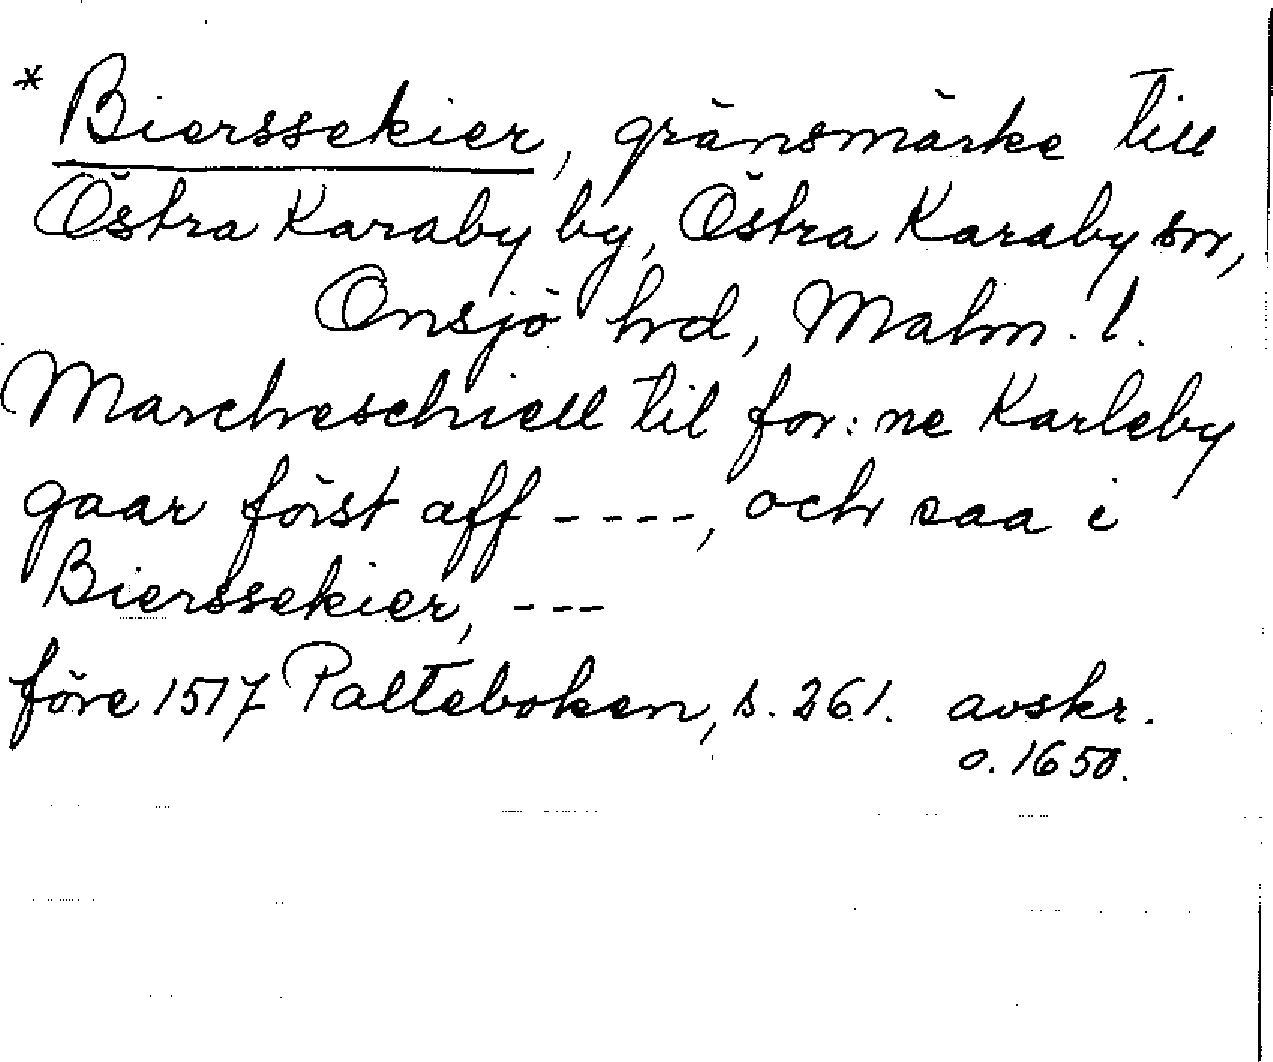 * Bierssekier, gränsmärke till
Östra Karaby by, Östra Karaby sn,
Onsjö hrd, Malm. l.
Marcheschiell til for:ne Karleby
gaar först aff ----, och saa i
Bierssekier, ---
före 1517 Palteboken, s. 261. avskr.
o. 1650.